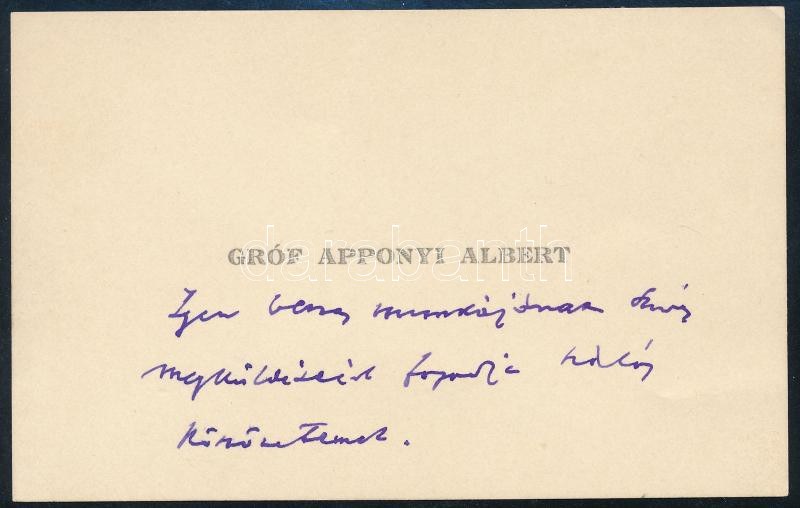 GRÓF APPONYI ALBERT
darabanth
Igen becses munkájának szíves
megküldéséért fogadja hálás
köszönetemet.